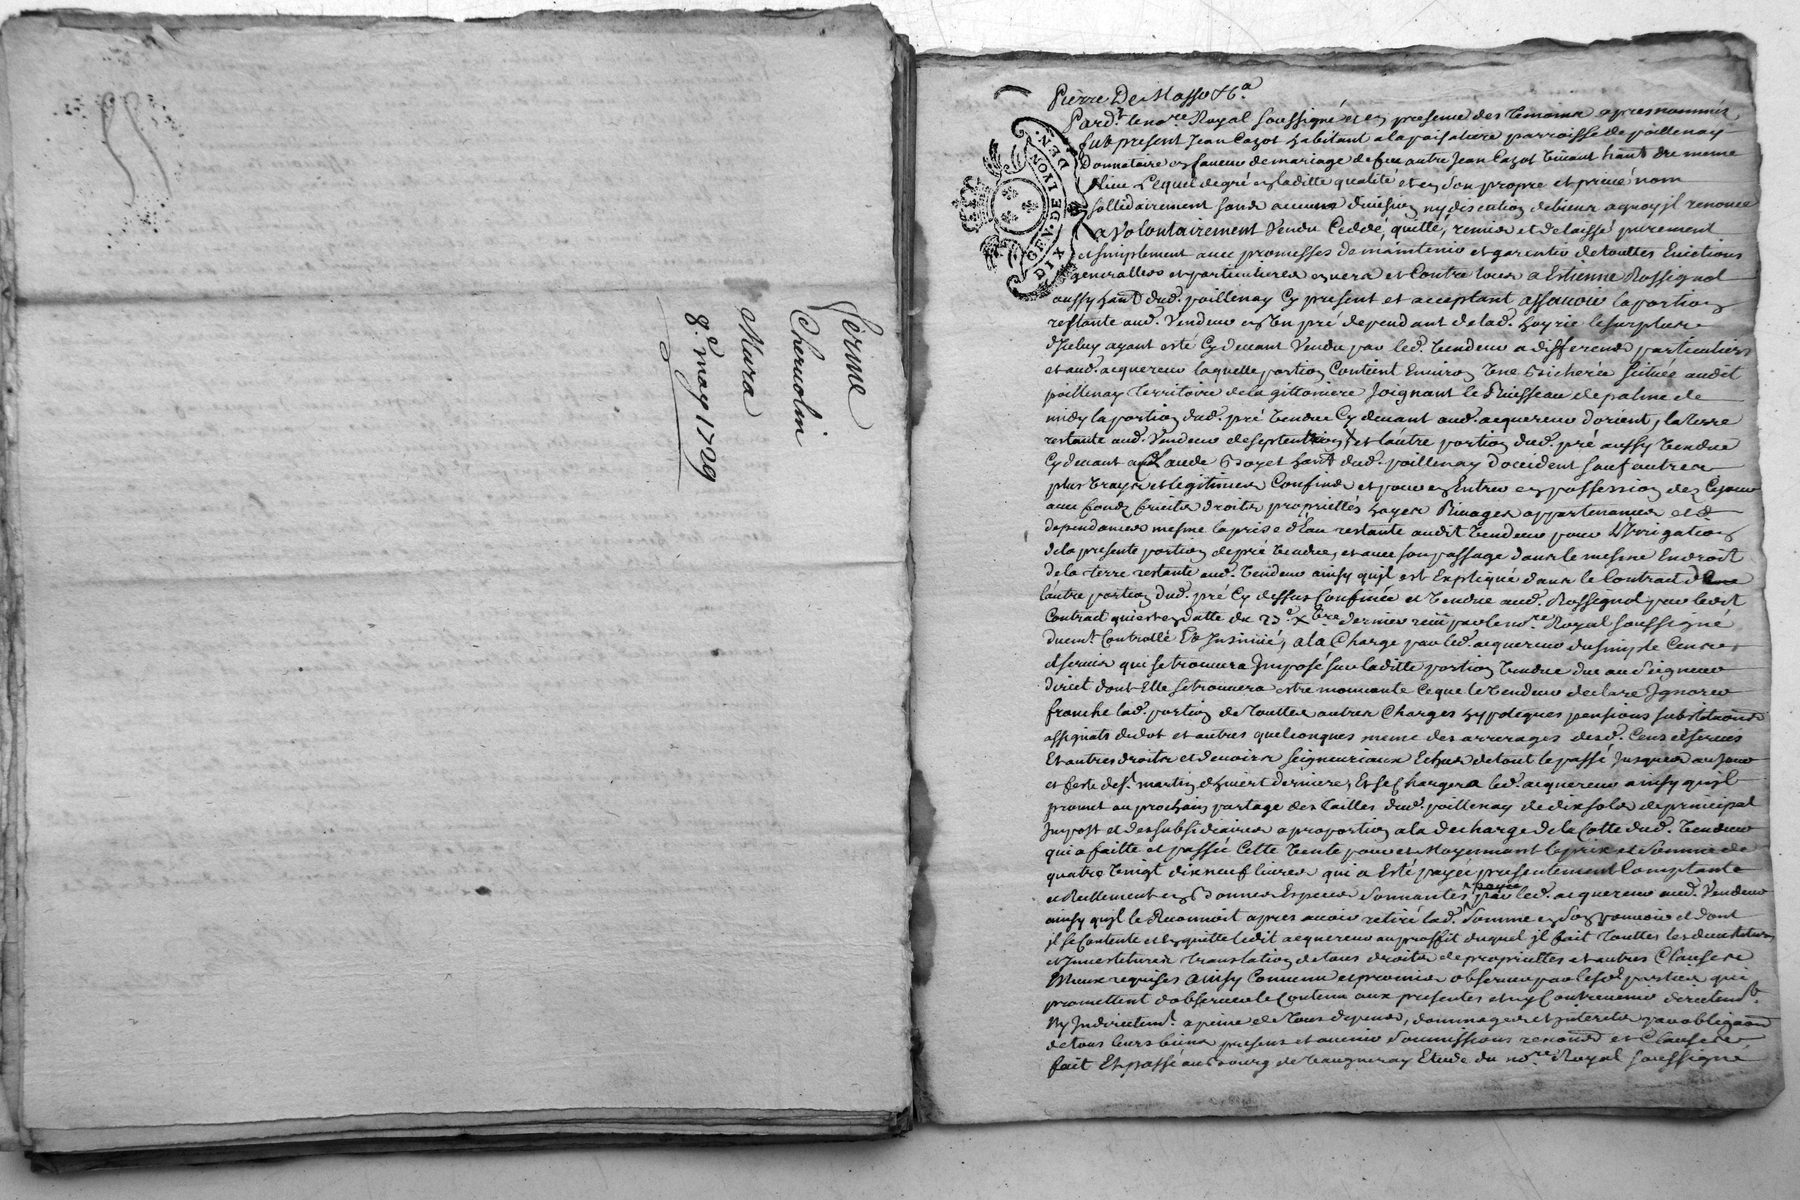 ferme
Cheruolin
Mura
8.e may 1729
GEN. DE LYON
DIX DEN.
Pierre De Masso &a
Pard.t le no.re Royal soussigné et en presence des temoins apres nommés
fut present Jean Cazot habitant a la paisatiere parroisse de poillenay
Donnataire en faueur de mariage de feu autre Jean Cazot viuant hant du meme
lieu Lequel de gré en laditte qualité et en son propre et priué nom
sollidairement sans aucune diuision ny discution de biens a quoy jl renonce
a volontairement Vendu Ceddé, quitté, remis et delaissé purement
et simplement auec promesses de maintenir et garentir de touttes Euictions
generalles et particulieres enuers et Contre tous a Estienne Rossignol
aussy hant dud. poillenay Cy present et acceptant assauoir la portion
restante aud. Vendeur en Un pré dependant de lad. hoyrie le surplus
d'Iceluy ayant esté Cy deuant Vendu par led. Vendeur a differends particuliers
et aud. acquereur laquelle portion Contient Enuiron Une Bicheree scituée audit
poillenay territoire de la gittonniere Joignant le Ruisseau de palme de
midy la portion dud. pré Vendue Cy deuant aud. acquereur d'orient, la terre
restante aud. Vendeur de septentrion et l'autre portion dud. pré aussy Vendue
Cy deuant a Claude Boyet hant dud. poillenay d'occident sauf autres
plus Vrays et legitimes Confins et pour en Entrer en possession dez Ce jour
auec fondz fruits droits proprietés hayes Riuages appartenances et
dependances mesme la prise d'Eau restante audit Vendeur pour L'Irrigation
de la presente portion de pré Vendue, et auec son passage dans le mesme Endroit
de la terre restante aud. Vendeur ainsy quil est Expliqué dans le Contract de
lautre portion dud. pré Cy dessus Confinée et Vendue aud. Rossignol par ledit
Contract qui est en datte du 23.e Xbre dernier receu par le no.re Royal soussigné
duem.t Controllé & Insinué, a la Charge par led. acquereur du simple Cens et
et seruis qui se trouuera Imposé sur laditte portion Vendue due au Seigneur
direct dont Elle se trouuera estre mouuante Ce que le Vendeur declare Ignorer
franche lad. portion de touttes autres Charges hypoteques pensions substitutions
assignats de dot et autres quelconques meme des arrerages desd. Cens et seruis
Et autres droits et deuoirs seigneuriaux Echus de tout le passé Jusques au Jour
et feste de S.t martin d'hiuert derniere, Et se Chargera led. acquereur ainsy quil
promet au prochain partage des tailles dud. poillenay de dix sols de principal
Impost et des subsidiaires a proportion a la decharge de la Cotte dud. Vendeur
qui a faitte et passée Cette Vente pour et Moyennant le prix et somme de
quatre Vingt dix neuf liures qui a Esté payée presentement Comptante
et Reellement en Bonnes Especes sonnantes par led. acquereur aud. Vendeur
ainsy quil le Reconnoit apres auoir retiré lad. somme en son pouuoir et dont
jl se Contente et en quitte ledit acquereur au proffit duquel jl fait touttes les deuestitures
et Inuestitures translation de tous droits de propriettes et autres Clauses
Mieux requises Ainsy Conuenu et promis obseruer par lesd. parties qui
promettent d'obseruer le Contenu aux presentes et ny Contreuenir directem.t
Ny Indirectem.t a peine de tous depens, dommages et interets par obligaon
de tous leurs biens presens et auenir soumissions renond et Clauses
fait Et passé au Bourg de Vaugneray Etude du no.re Royal soussigné